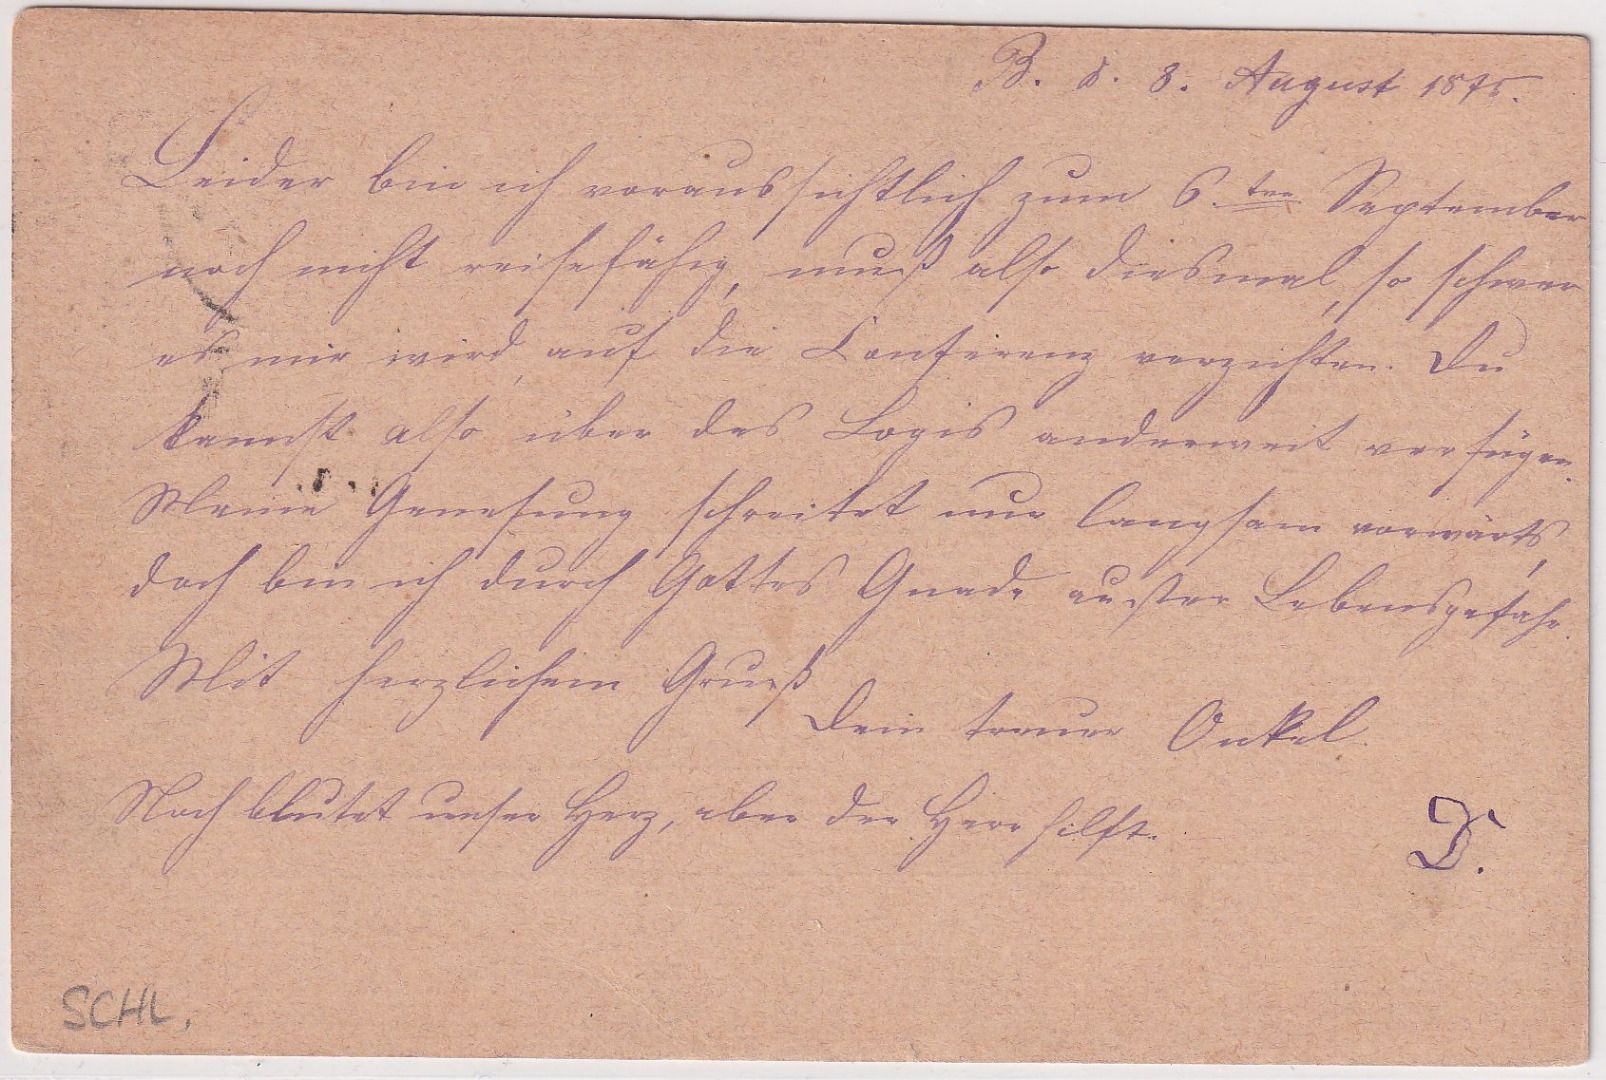 B. d. 8. August 1875.
Leider bin ich voraussichtlich zum 6.ten September
noch nicht reisefähig, muß also diesmal, so schwer
es mir wird, auf die Conferenz verzichten. Du
kannst also über das Logis anderweit verfügen.
Meine Genesung schreitet nur langsam vorwärts,
doch bin ich durch Gottes Gnade außer Lebensgefahr.
Mit herzlichem Gruß
Dein treuer Onkel
D.
Noch blutet unser Herz, aber der Herr hilft.
SCHL.